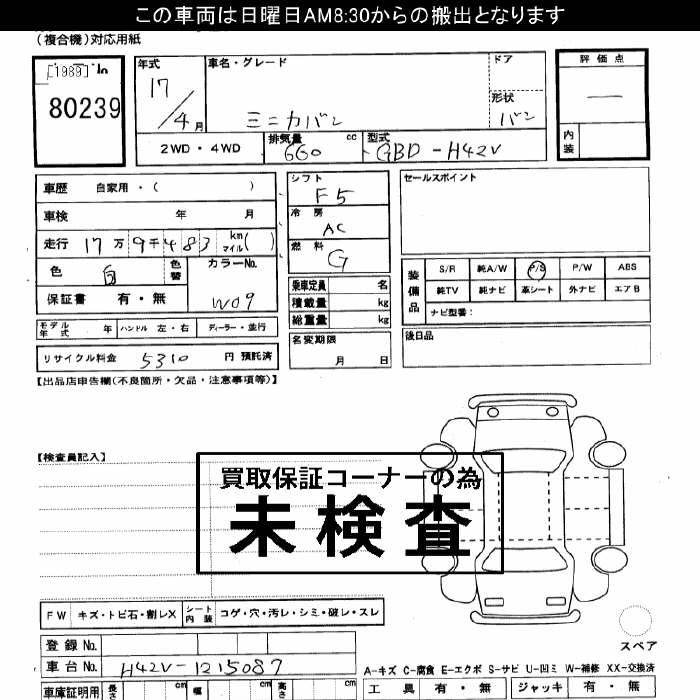 この車両は日曜日AM8:30からの搬出となります
(複合機)対応用紙
[1989] 10
80239
年式
17/4月
車名・グレード
ミニカバン
ドア
形状
バン
評価点
―
内装
2WD・4WD
排気量
660 cc
型式
GBD-H42V
車歴 自家用・( )
車検 年 月
走行 17万9千483 km マイル( )
色 白 色替
カラーNo.
W09
保証書 有・無
モデル年式 年 ハンドル 左・右 ディーラー・並行
リサイクル料金 5310 円 預託済
シフト
F5
冷房
AC
燃料
G
乗車定員 名
積載量 kg
総重量 kg
名変期限
月 日
セールスポイント
装備品
S/R 純A/W P/S P/W ABS
純TV 純ナビ 革シート 外ナビ エアB
ナビ型番:
後日品
【出品店申告欄(不良箇所・欠品・注意事項等)】
【検査員記入】
買取保証コーナーの為
未検査
FW キズ・トビ石・割レX シート内装 コゲ・穴・汚レ・シミ・破レ・スレ
登録No.
車台No. H42V-1215087
車庫証明用 長さ cm 幅 cm 高さ cm
スペア
A-キズ C-腐食 E-エクボ S-サビ U-凹ミ W-補修 XX-交換済
工具 有・無 ジャッキ 有・無